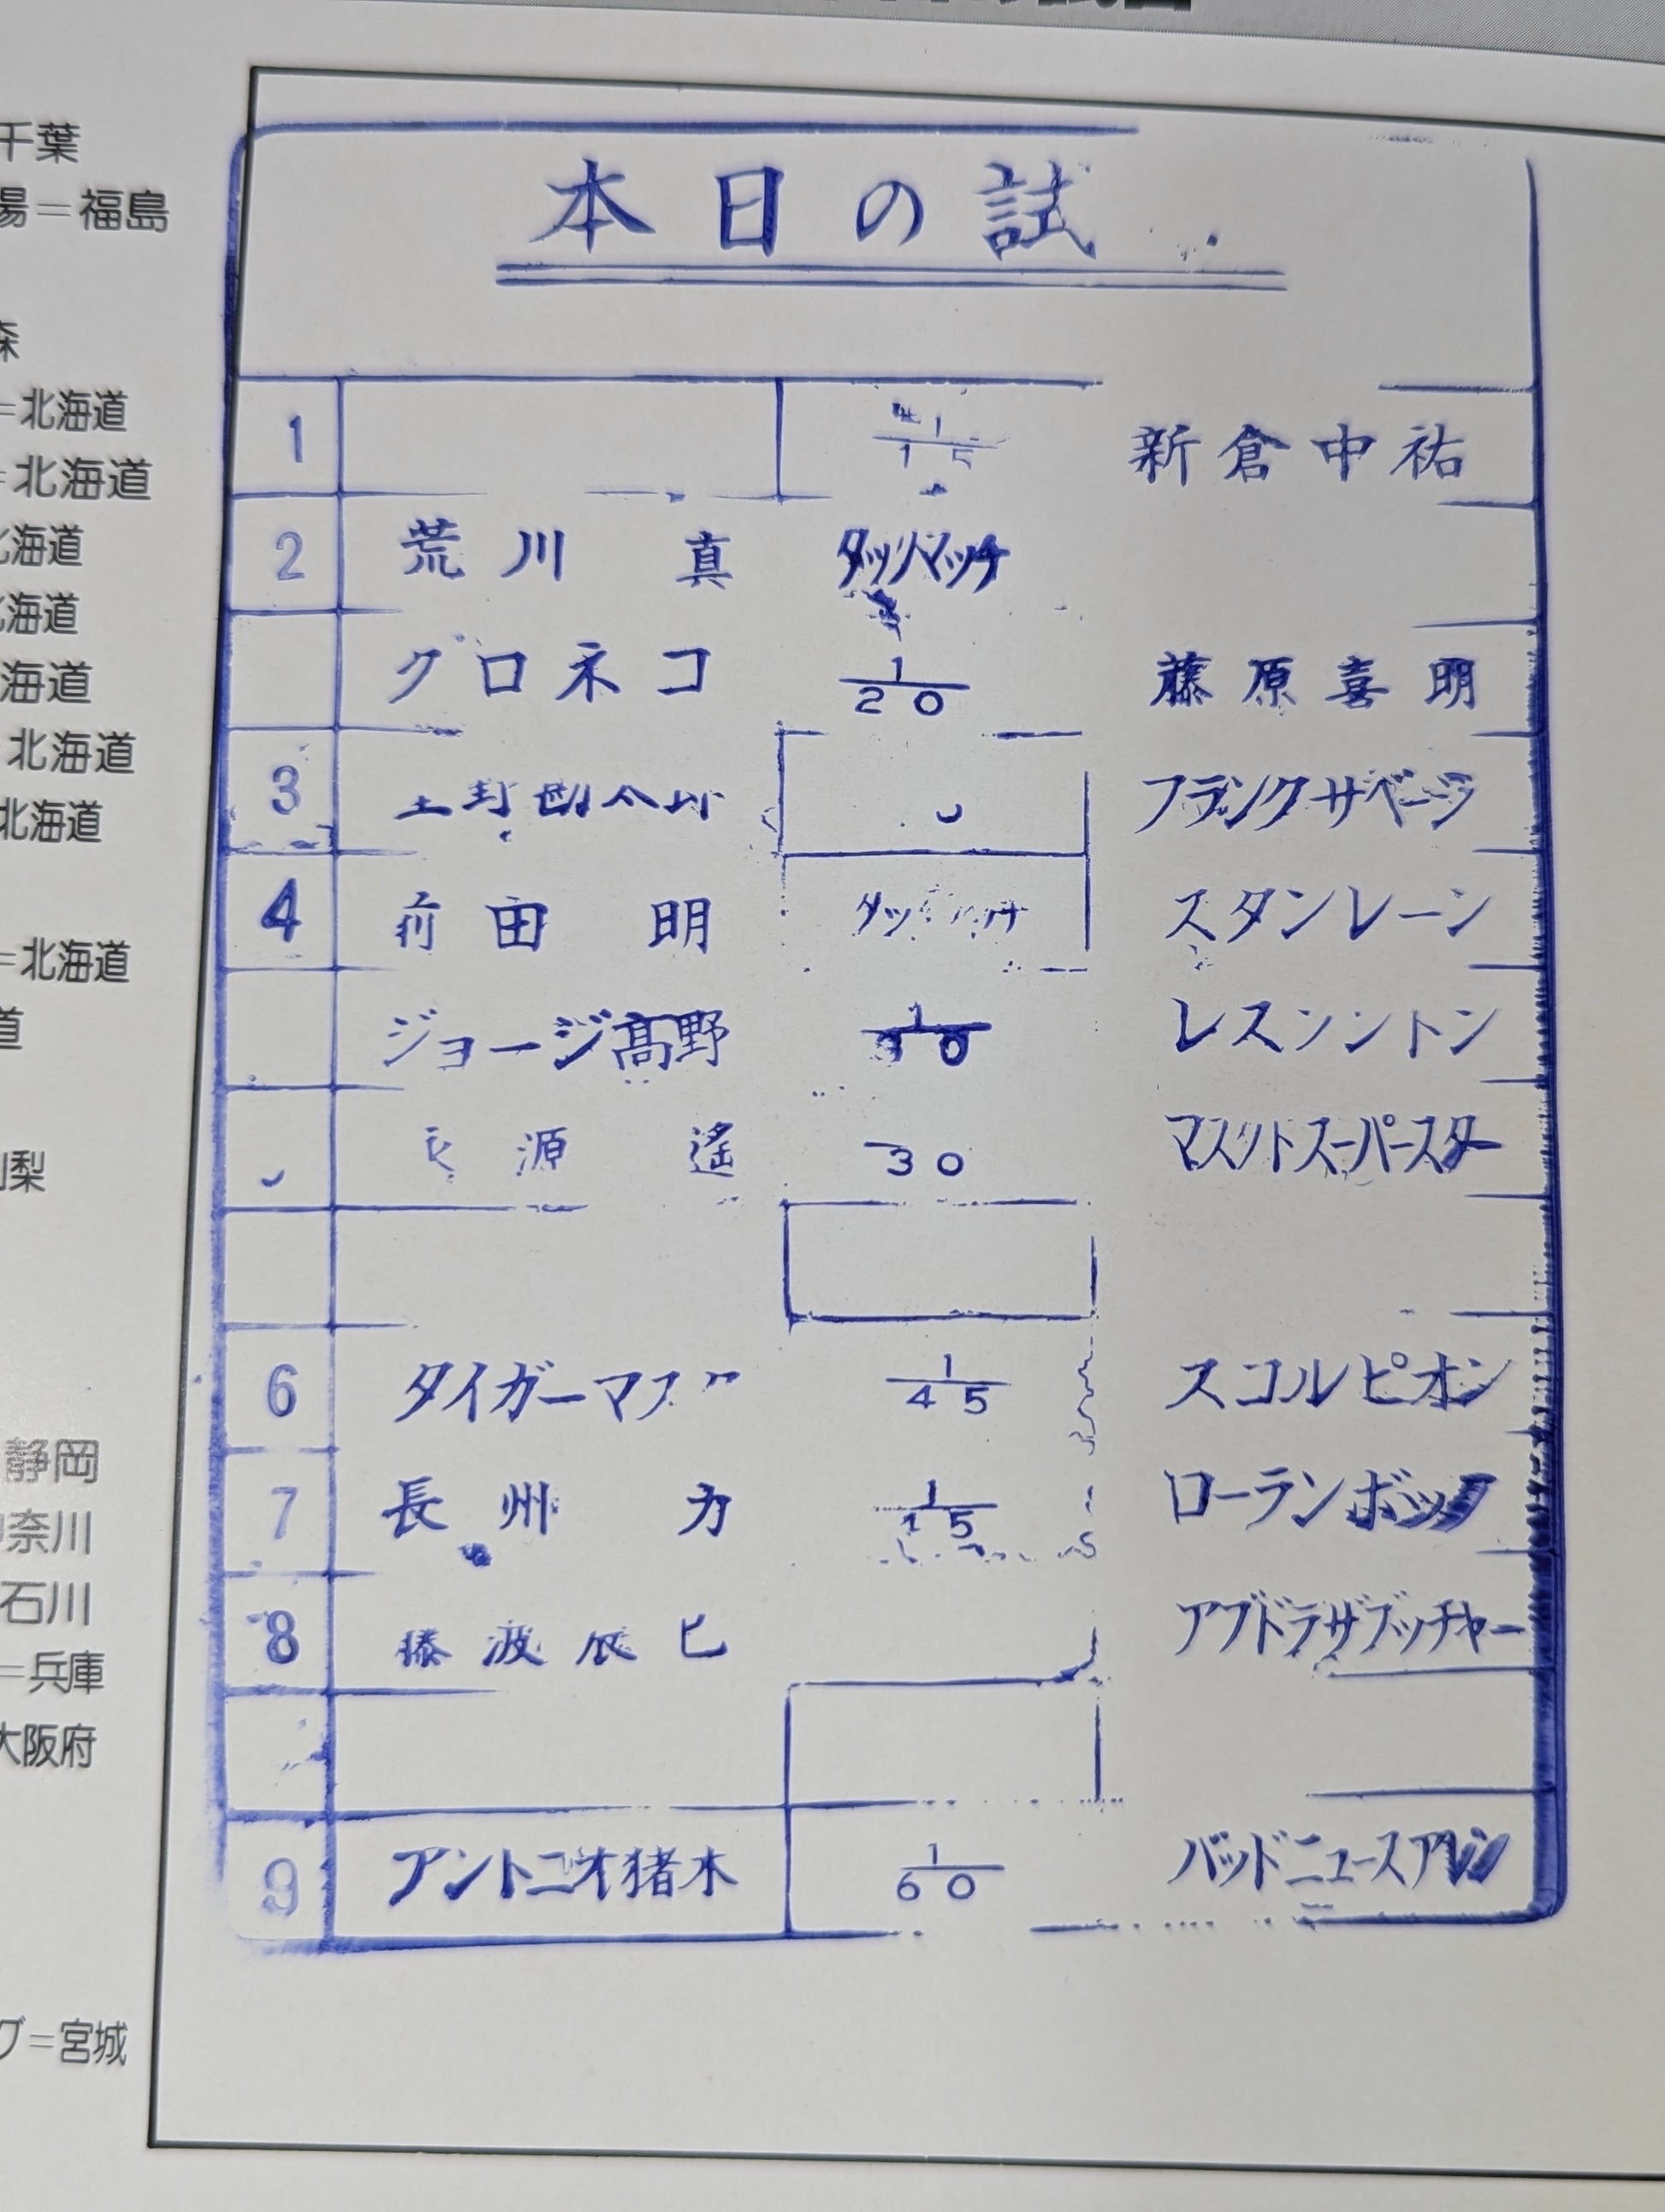 千葉
場＝福島
森
＝北海道
＝北海道
北海道
北海道
海道
北海道
北海道
＝北海道
道
梨
静岡
奈川
石川
＝兵庫
大阪府
グ＝宮城
本日の試
1 1/15 新倉中祐
2 荒川 真 タッグマッチ
グロネコ 1/20 藤原喜明
3 フランクサベージ
4 前田 明 スタンレーン
ジョージ高野 1/30 レスソントン
源 遙 30 マスクトスーパースター
6 タイガーマス 1/45 スコルピオン
7 長州 力 1/15 ローランボック
8 藤波辰巳 アブドラザブッチャー
9 アントニオ猪木 1/60 バッドニュースアレン